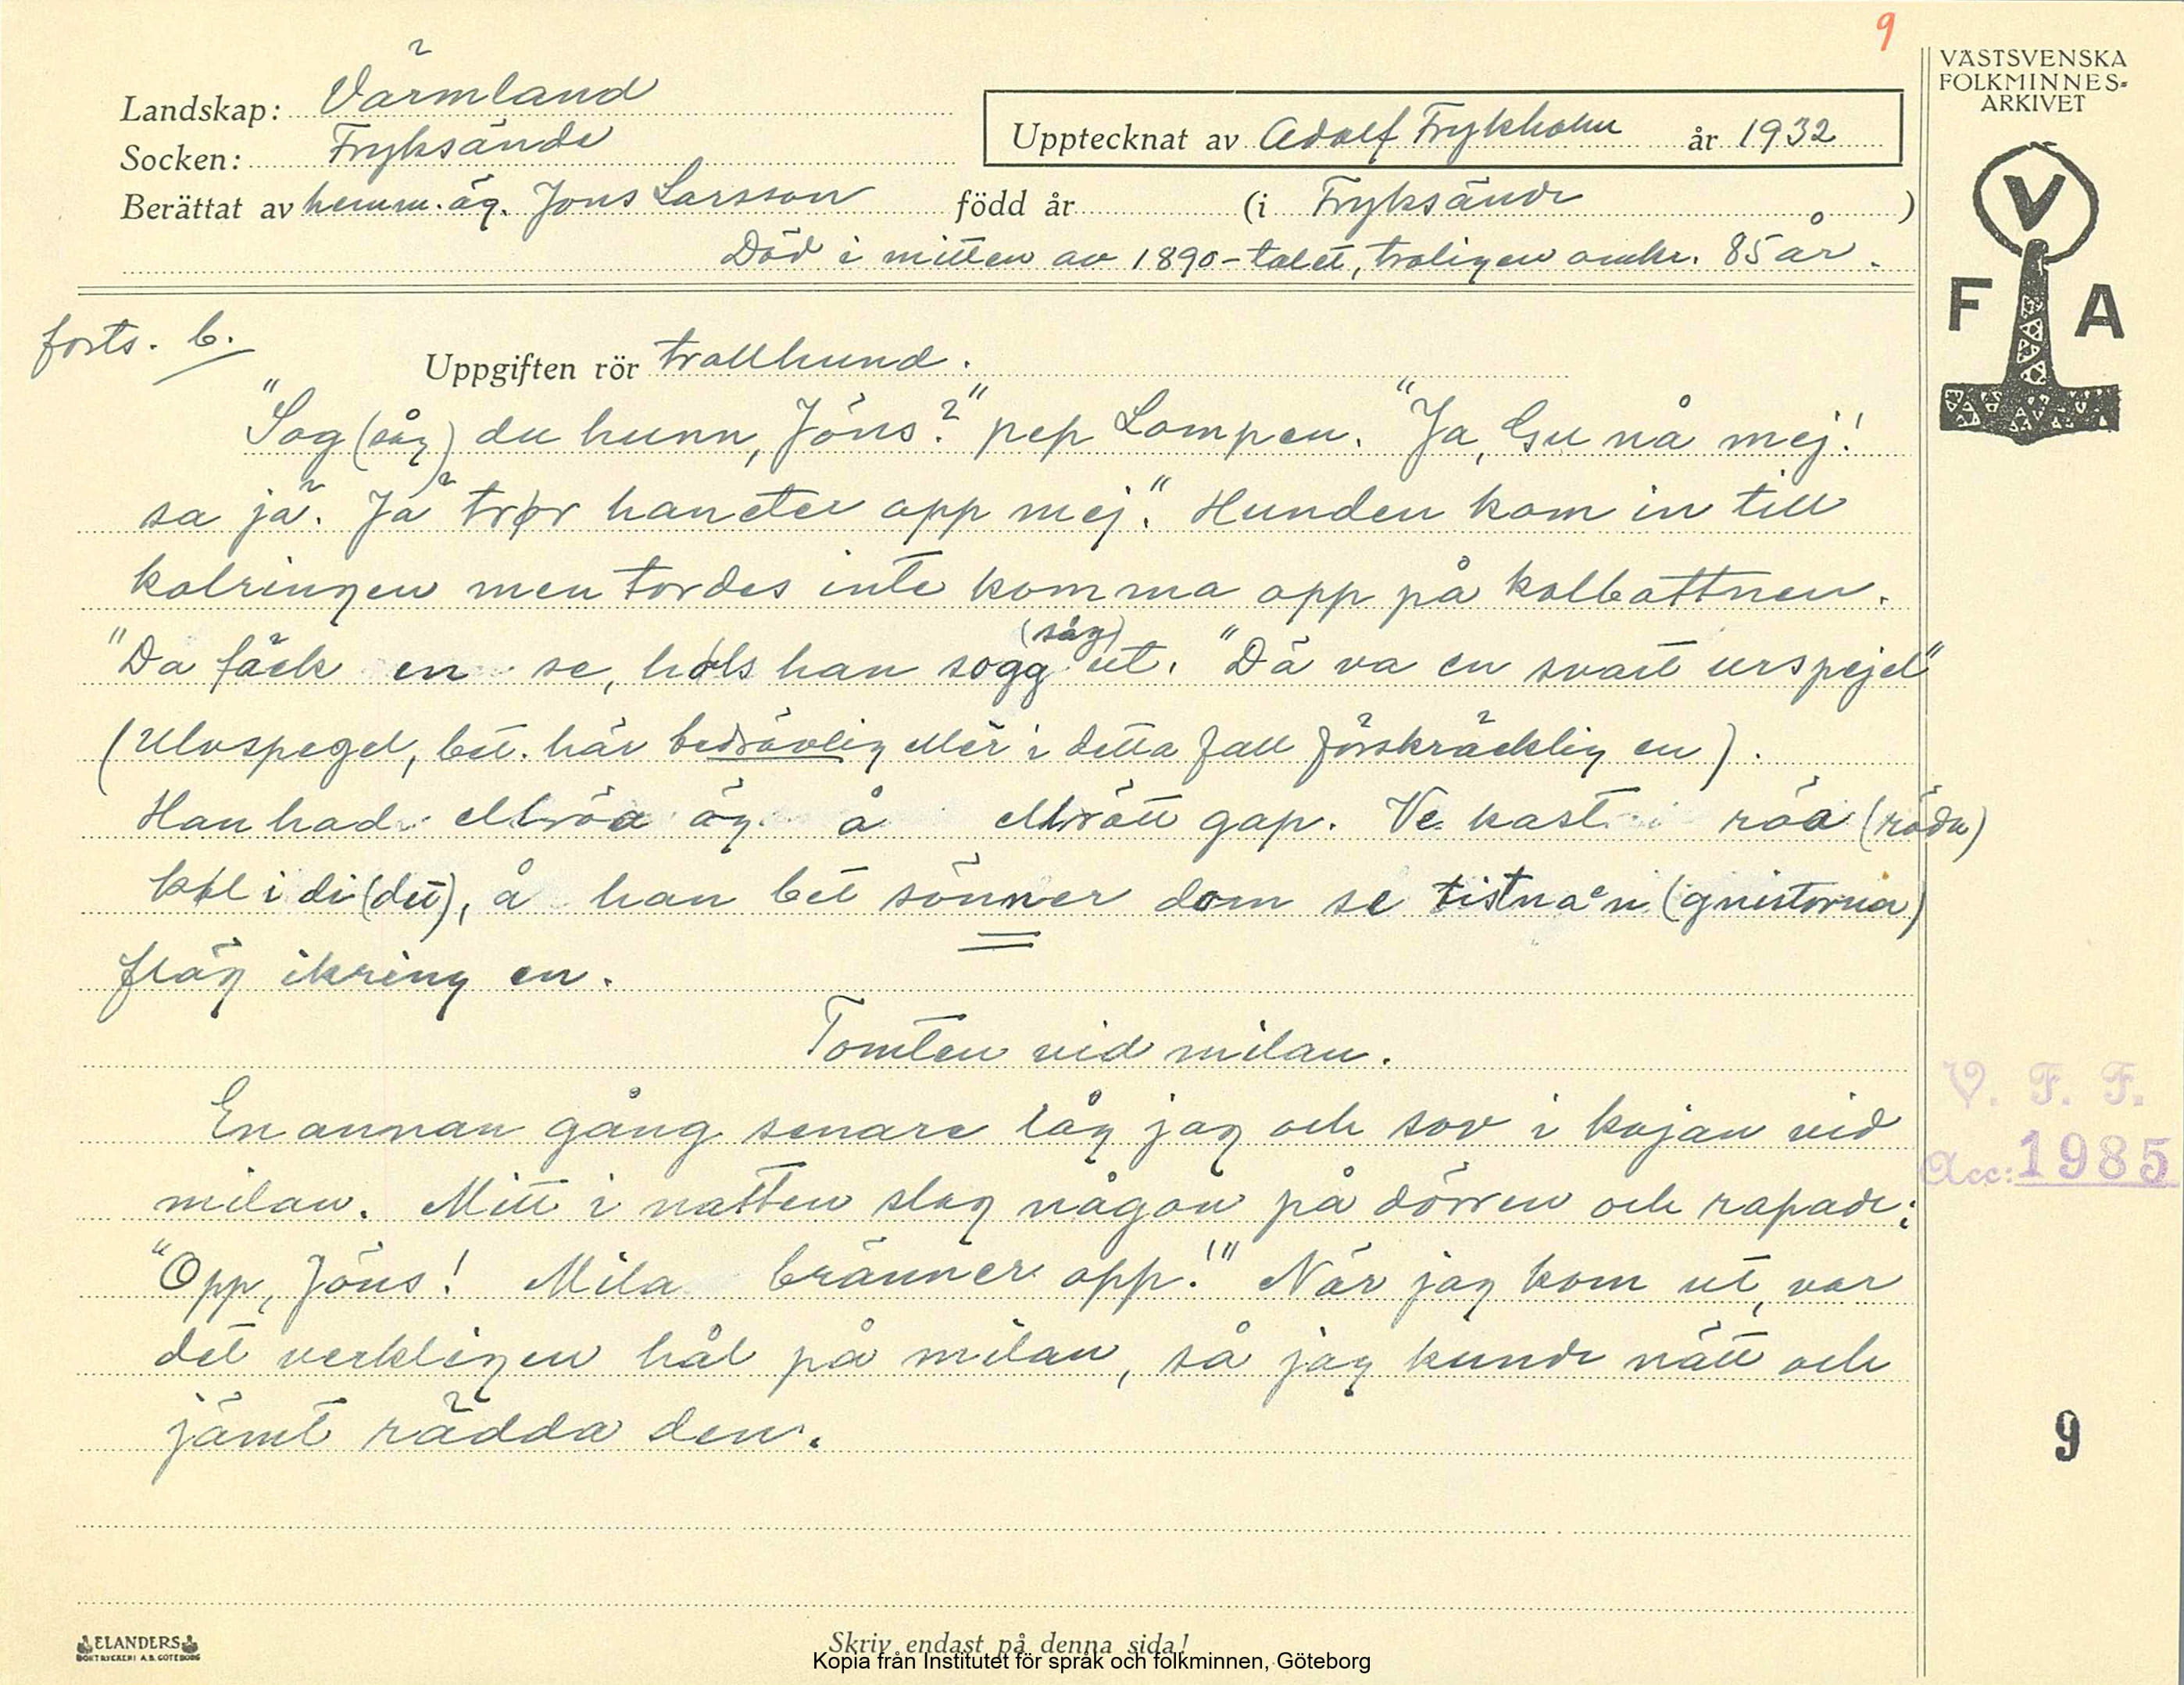 9
VÄSTSVENSKA
FOLKMINNES-
ARKIVET
Landskap: Värmland
Socken: Fryksände
Upptecknat av Adolf Frykholm år 1932
Berättat av hemm.äg. Jöns Larsson född år (i Fryksände)
Död i mitten av 1890-talet, troligen omkr. 85 år.
V
F A
forts. b.
Uppgiften rör trollhund.
"Sog (såg) du hunn, Jöns?" pep Lompen. "Ja, Gu nå mej!
sa jä. Jä trør han eter opp mej." Hunden kom in till
kolringen men tordes inte komma opp på kolbottnen.
"Da fäck en se, håls han sogg (såg) ut. "Dä va en svart urspejel"
(Ulvspegel, bet. här bedrövlig eller i detta fall förskräcklig en).
Han had ellröa ög å ellrött gap. Ve kast röa (röda)
køl i di (det), å han bet sönner dom se tistna'n (gnistorna)
flög ikring en.
Tomten vid milan.
En annan gång senare låg jag och sov i kojan vid
milan. Mitt i natten slog någon på dörren och ropade:
"Opp, Jöns! Mila bränner opp!" När jag kom ut, var
det verkligen hål på milan, så jag kunde nätt och
jämt rädda den.
V. F. F.
Acc: 1985
9
ELANDERS
BOKTRYCKERI A.B. GÖTEBORG
Skriv endast på denna sida!
Kopia från Institutet för språk och folkminnen, Göteborg